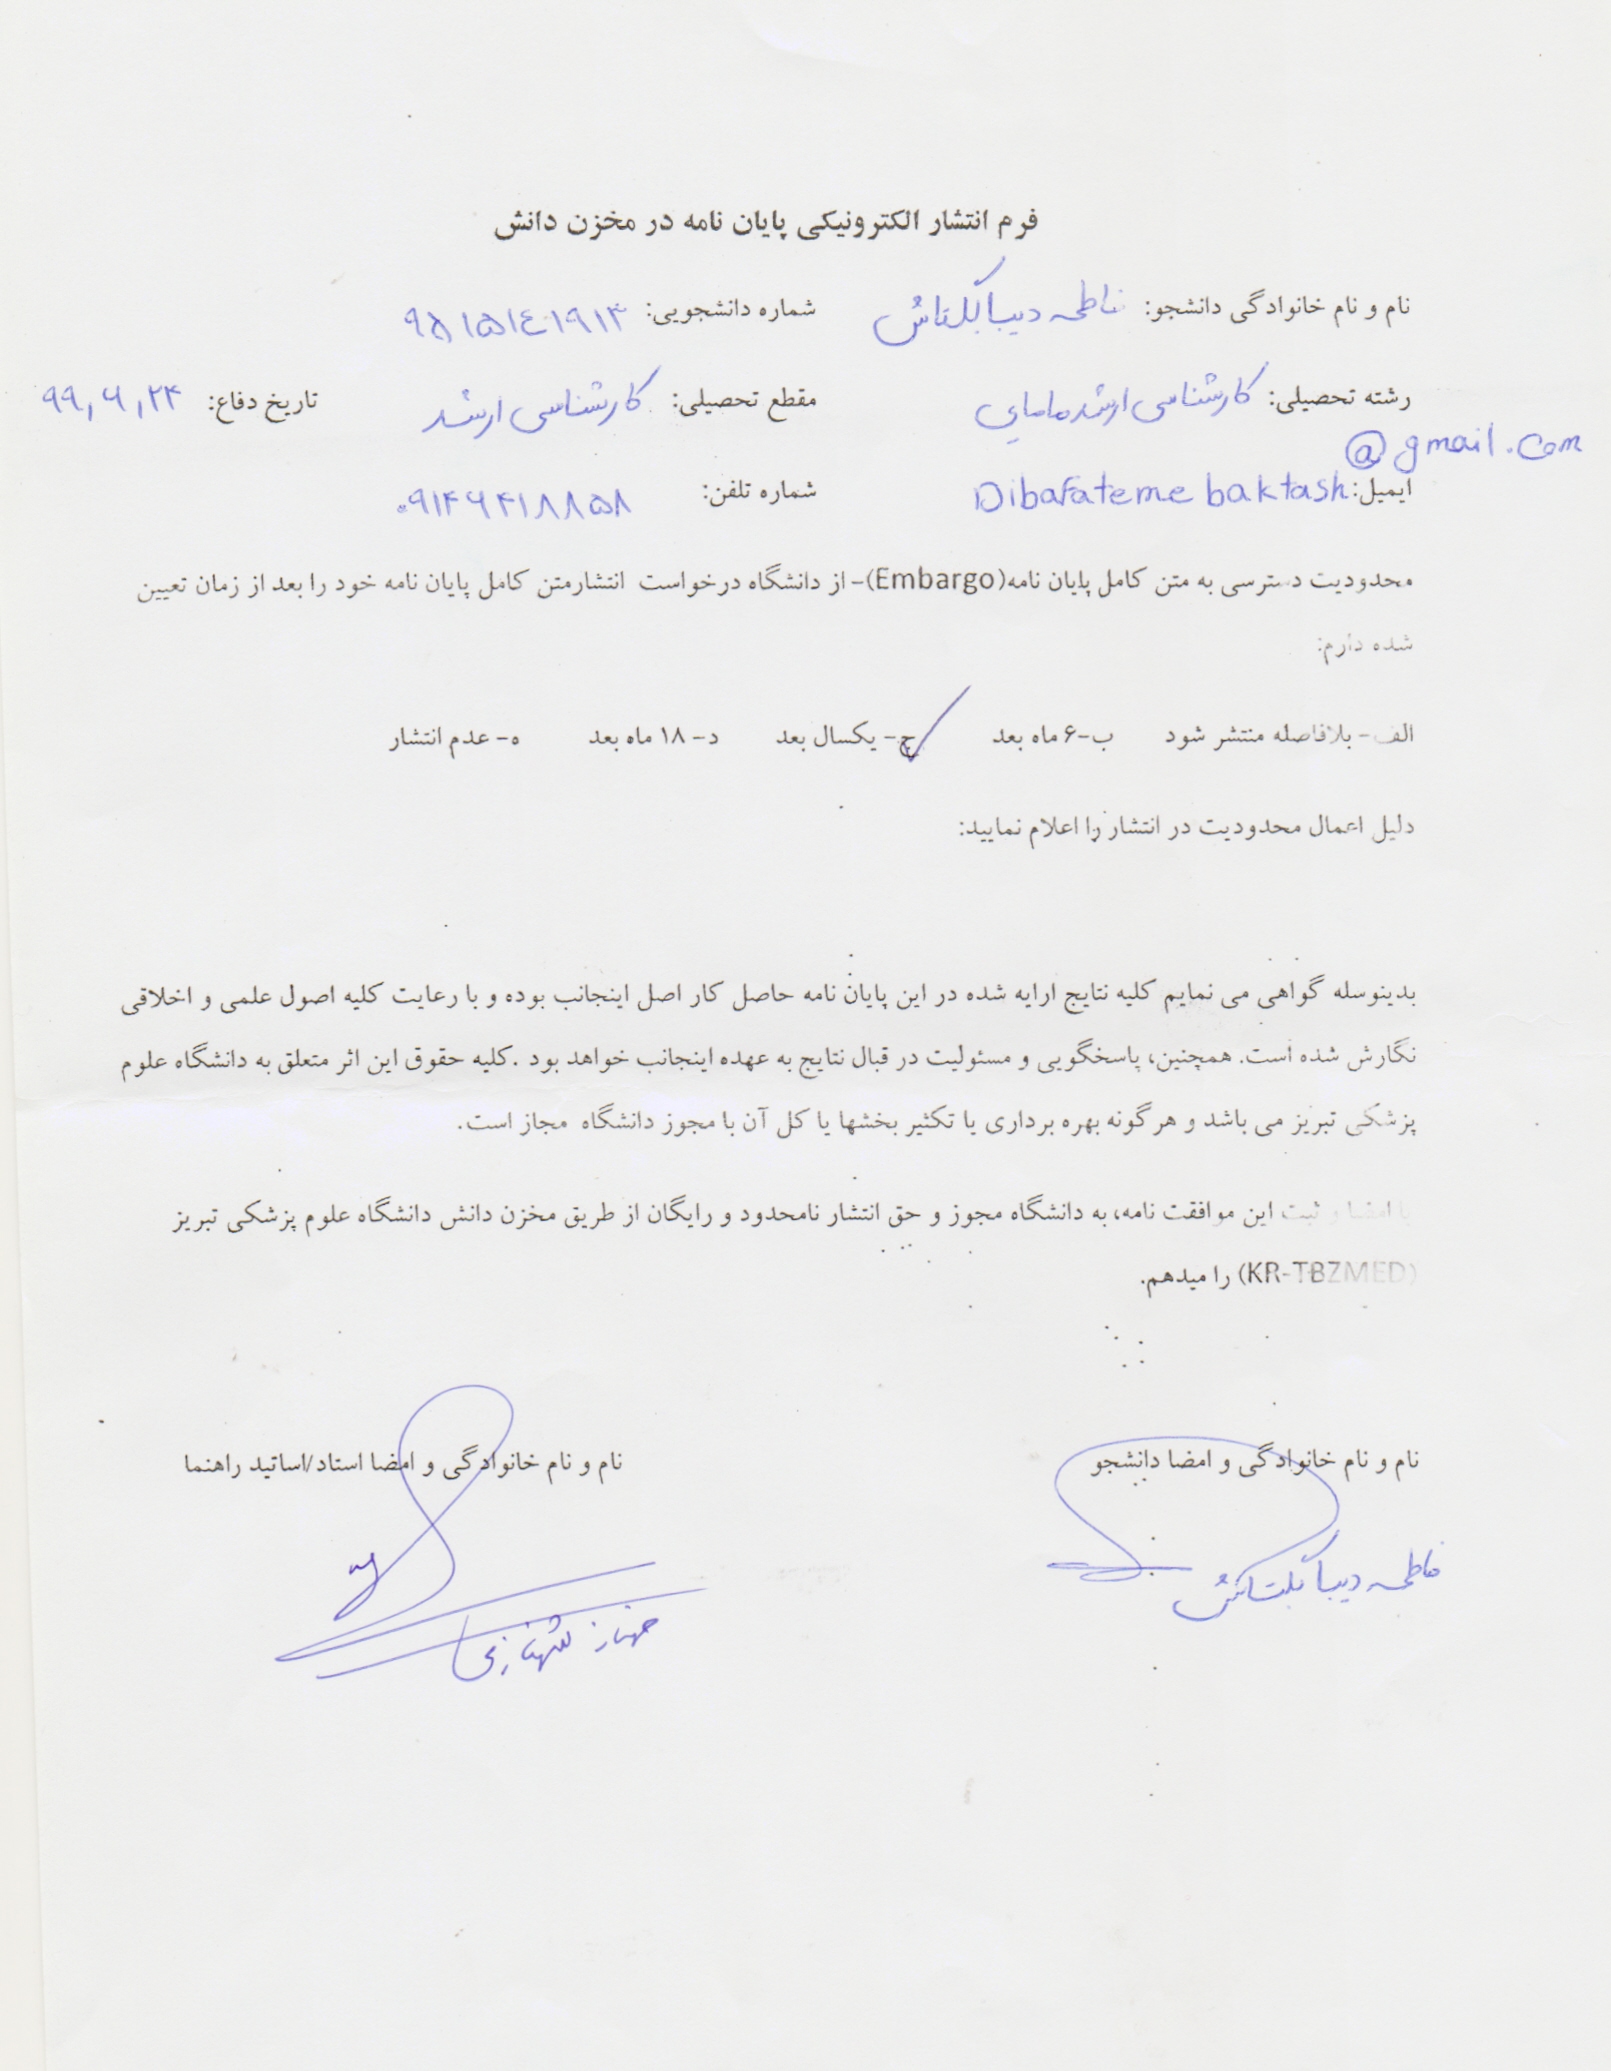 فرم انتشار الکترونیکی پایان نامه در مخزن دانش
نام و نام خانوادگی دانشجو: فاطمه دیبا بکتاش شماره دانشجویی:
رشته تحصیلی: کارشناسی ارشد مامایی مقطع تحصیلی: کارشناسی ارشد تاریخ دفاع: ۹۹,۶,۲۴
@gmail.com
ایمیل: Dibafateme baktash شماره تلفن: ۰۹۱۴۶۴۱۸۸۵۸
محدودیت دسترسی به متن کامل پایان نامه(Embargo)- از دانشگاه درخواست انتشارمتن کامل پایان نامه خود را بعد از زمان تعیین
شده دارم:
الف- بلافاصله منتشر شود ب-۶ ماه بعد ج- یکسال بعد د- ۱۸ ماه بعد ه- عدم انتشار
دلیل اعمال محدودیت در انتشار را اعلام نمایید:
بدینوسله گواهی می نمایم کلیه نتایج ارایه شده در این پایان نامه حاصل کار اصل اینجانب بوده و با رعایت کلیه اصول علمی و اخلاقی
نگارش شده است. همچنین، پاسخگویی و مسئولیت در قبال نتایج به عهده اینجانب خواهد بود .کلیه حقوق این اثر متعلق به دانشگاه علوم
پزشکی تبریز می باشد و هرگونه بهره برداری یا تکثیر بخشها یا کل آن با مجوز دانشگاه مجاز است.
با امضا و ثبت این موافقت نامه، به دانشگاه مجوز و حق انتشار نامحدود و رایگان از طریق مخزن دانش دانشگاه علوم پزشکی تبریز
(KR-TBZMED) را میدهم.
نام و نام خانوادگی و امضا دانشجو نام و نام خانوادگی و امضا استاد/اساتید راهنما
فاطمه دیبا بکتاش
مهناز شهنازی